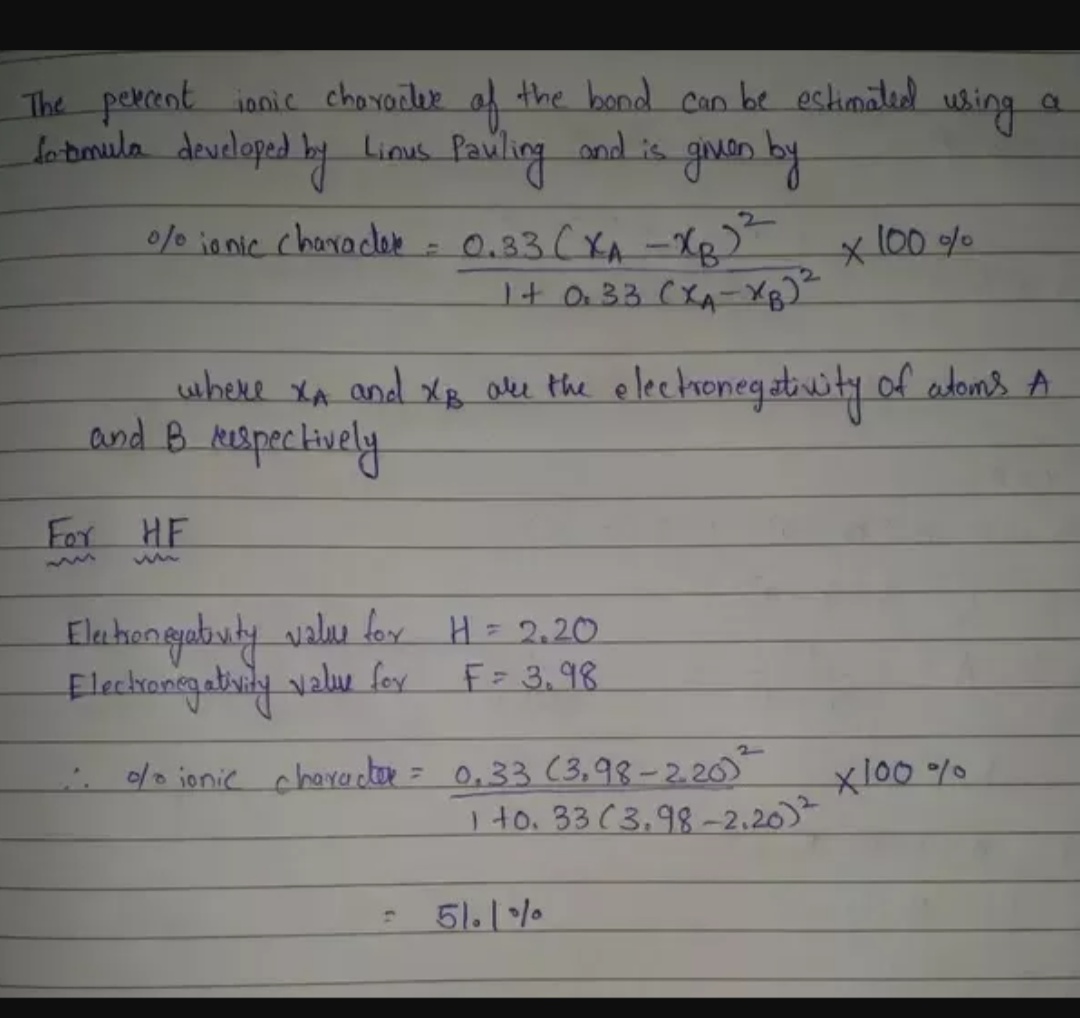 The percent ionic character of the bond can be estimated using a
formula developed by Linus Pauling and is given by
% ionic character = 0.33 (xA - xB)² / 1 + 0.33 (xA - xB)² × 100 %
where xA and xB are the electronegativity of atoms A
and B respectively
For HF
Electronegativity value for H = 2.20
Electronegativity value for F = 3.98
∴ % ionic character = 0.33 (3.98 - 2.20)² / 1 + 0.33 (3.98 - 2.20)² × 100 %
= 51.1 %